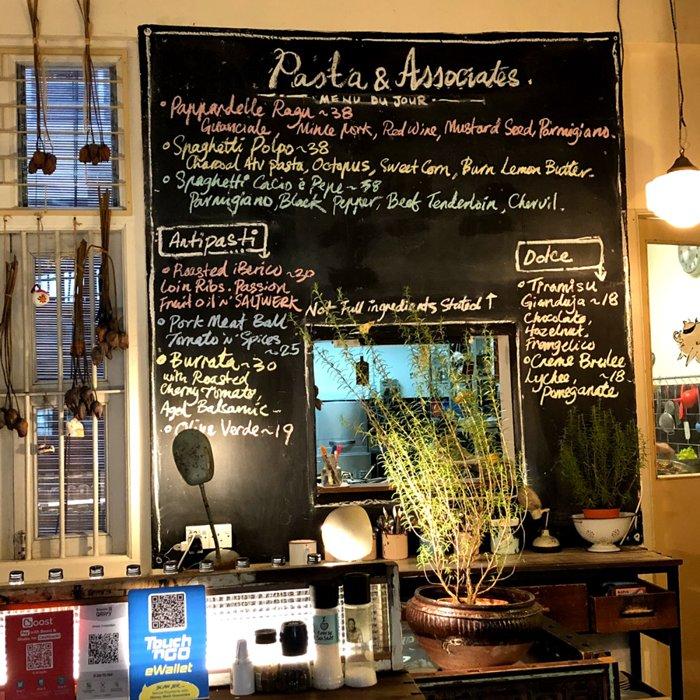 Pasta & Associates.
MENU DU JOUR
• Pappardelle Ragu ~ 38
Guanciale, Mince Pork, Red Wine, Mustard Seed, Parmigiano.
• Spaghetti Polpo ~ 38
Charcoal Atv Pasta, Octopus, Sweet Corn, Burn Lemon Butter.
• Spaghetti Cacio è Pepe ~ 38
Parmigiano, Black Pepper, Beef Tenderloin, Chervil.
Antipasti
• Roasted iBerico ~ 30
Loin Ribs. Passion
Fruit Oil 'n' SALTWERK
• Pork Meat Ball
Tomato 'n' Spices
~ 25
• Burrata ~ 30
with Roasted
Cherry Tomato,
Aged Balsamic -
• Olive Verde ~ 19
Not Full ingredients Stated ↑
Dolce
• Tiramisu
Gianduja ~ 18
Chocolate,
Hazelnut,
Frangelico
• Creme Brulee
Lychee, ~ 18
Pomeganate
boost
Touch
'n GO
eWallet